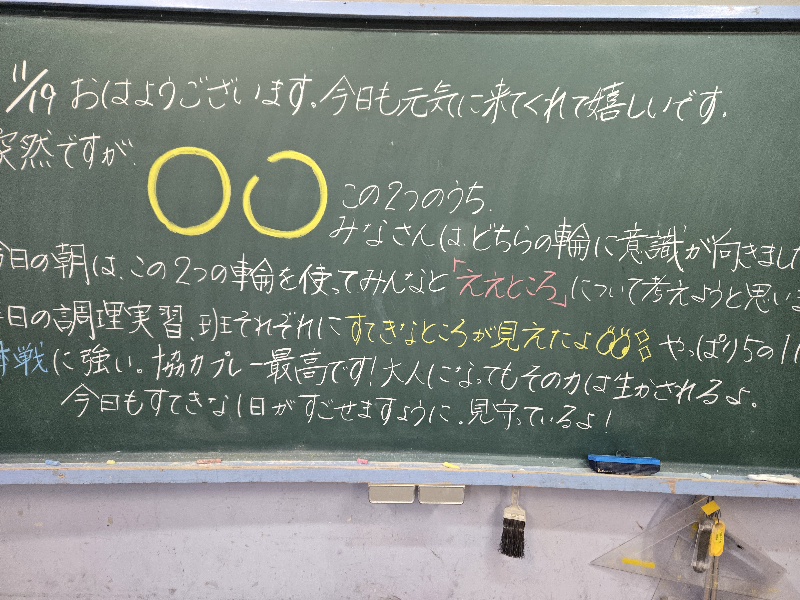 11/19 おはようございます。今日も元気に来てくれて嬉しいです。
突然ですが、
この2つのうち、
みなさんは、どちらの輪に意識が向きました
今日の朝は、この2つの輪を使ってみんなと「ええところ」について考えようと思いま
昨日の調理実習、班それぞれにすてきなところが見えたよ やっぱり5の1は
体戦に強い。協力プレー最高です!大人になってもその力は生かされるよ。
今日もすてきな1日がすごせますように。見守っているよ!